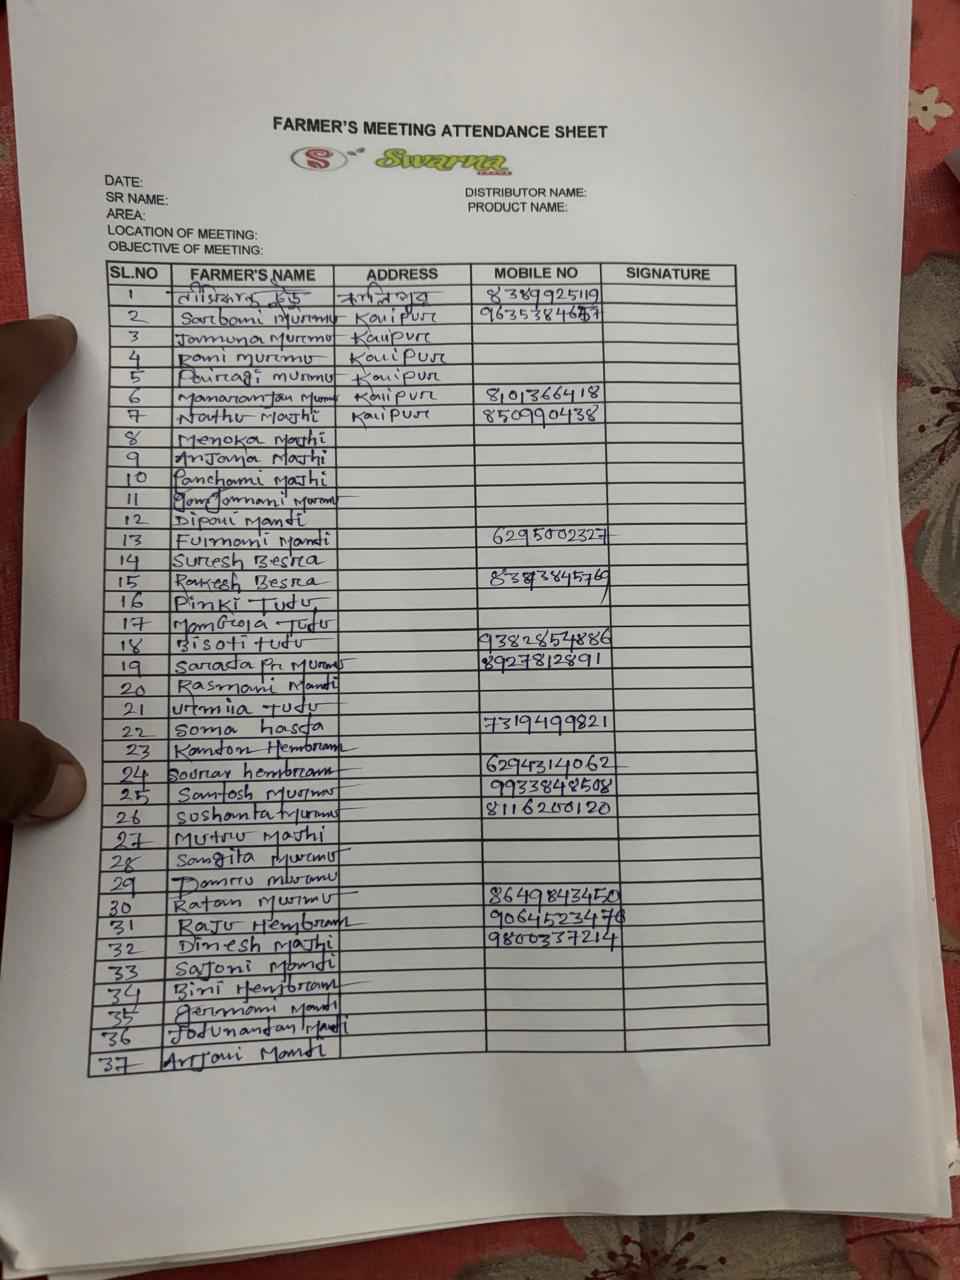 FARMER'S MEETING ATTENDANCE SHEET
S Swarna
DATE:
SR NAME:
AREA:
LOCATION OF MEETING:
OBJECTIVE OF MEETING:
DISTRIBUTOR NAME:
PRODUCT NAME:
SL.NO FARMER'S NAME ADDRESS MOBILE NO SIGNATURE
1 কালিপুর 8389925119
2 Sarbani Murmu Kalipur
3 Jamuna Murmu Kalipur
4 Rani Murmu Kalipur
5 Bairagi Murmu Kalipur
6 Manaranjan Murmu Kalipur 8101366418
7 Nathu Majhi Kalipur 850990438
8 Menoka Majhi
9 Anjana Majhi
10 Panchami Majhi
11 Murmu
12 Dipali Mandi
13 Fulmani Mandi 6295002327
14 Suresh Besra
15 Rakesh Besra
16 Pinki Tudu
17 Tudu
18 Bisoti tudu 9382854886
19 Sarada Pr Murmu 8927812891
20 Rasmani Mandi
21 Urmila Tudu
22 Soma hasda 7319499821
23 Kandon Hembram
24 Sourav hembram 6294314062
25 Santosh Murmu 9933848508
26 Sushanta Murmu 8116200120
27 Mutru Majhi
28 Sangita Murmu
29 Damru Murmu
30 Ratan Murmu 8649843450
31 Raju Hembram 9064523476
32 Dinesh Majhi 9800337214
33 Sajoni Mandi
34 Bini Hembram
35 Germani Mandi
36 Jodunandan Mandi
37 Anjali Mandi